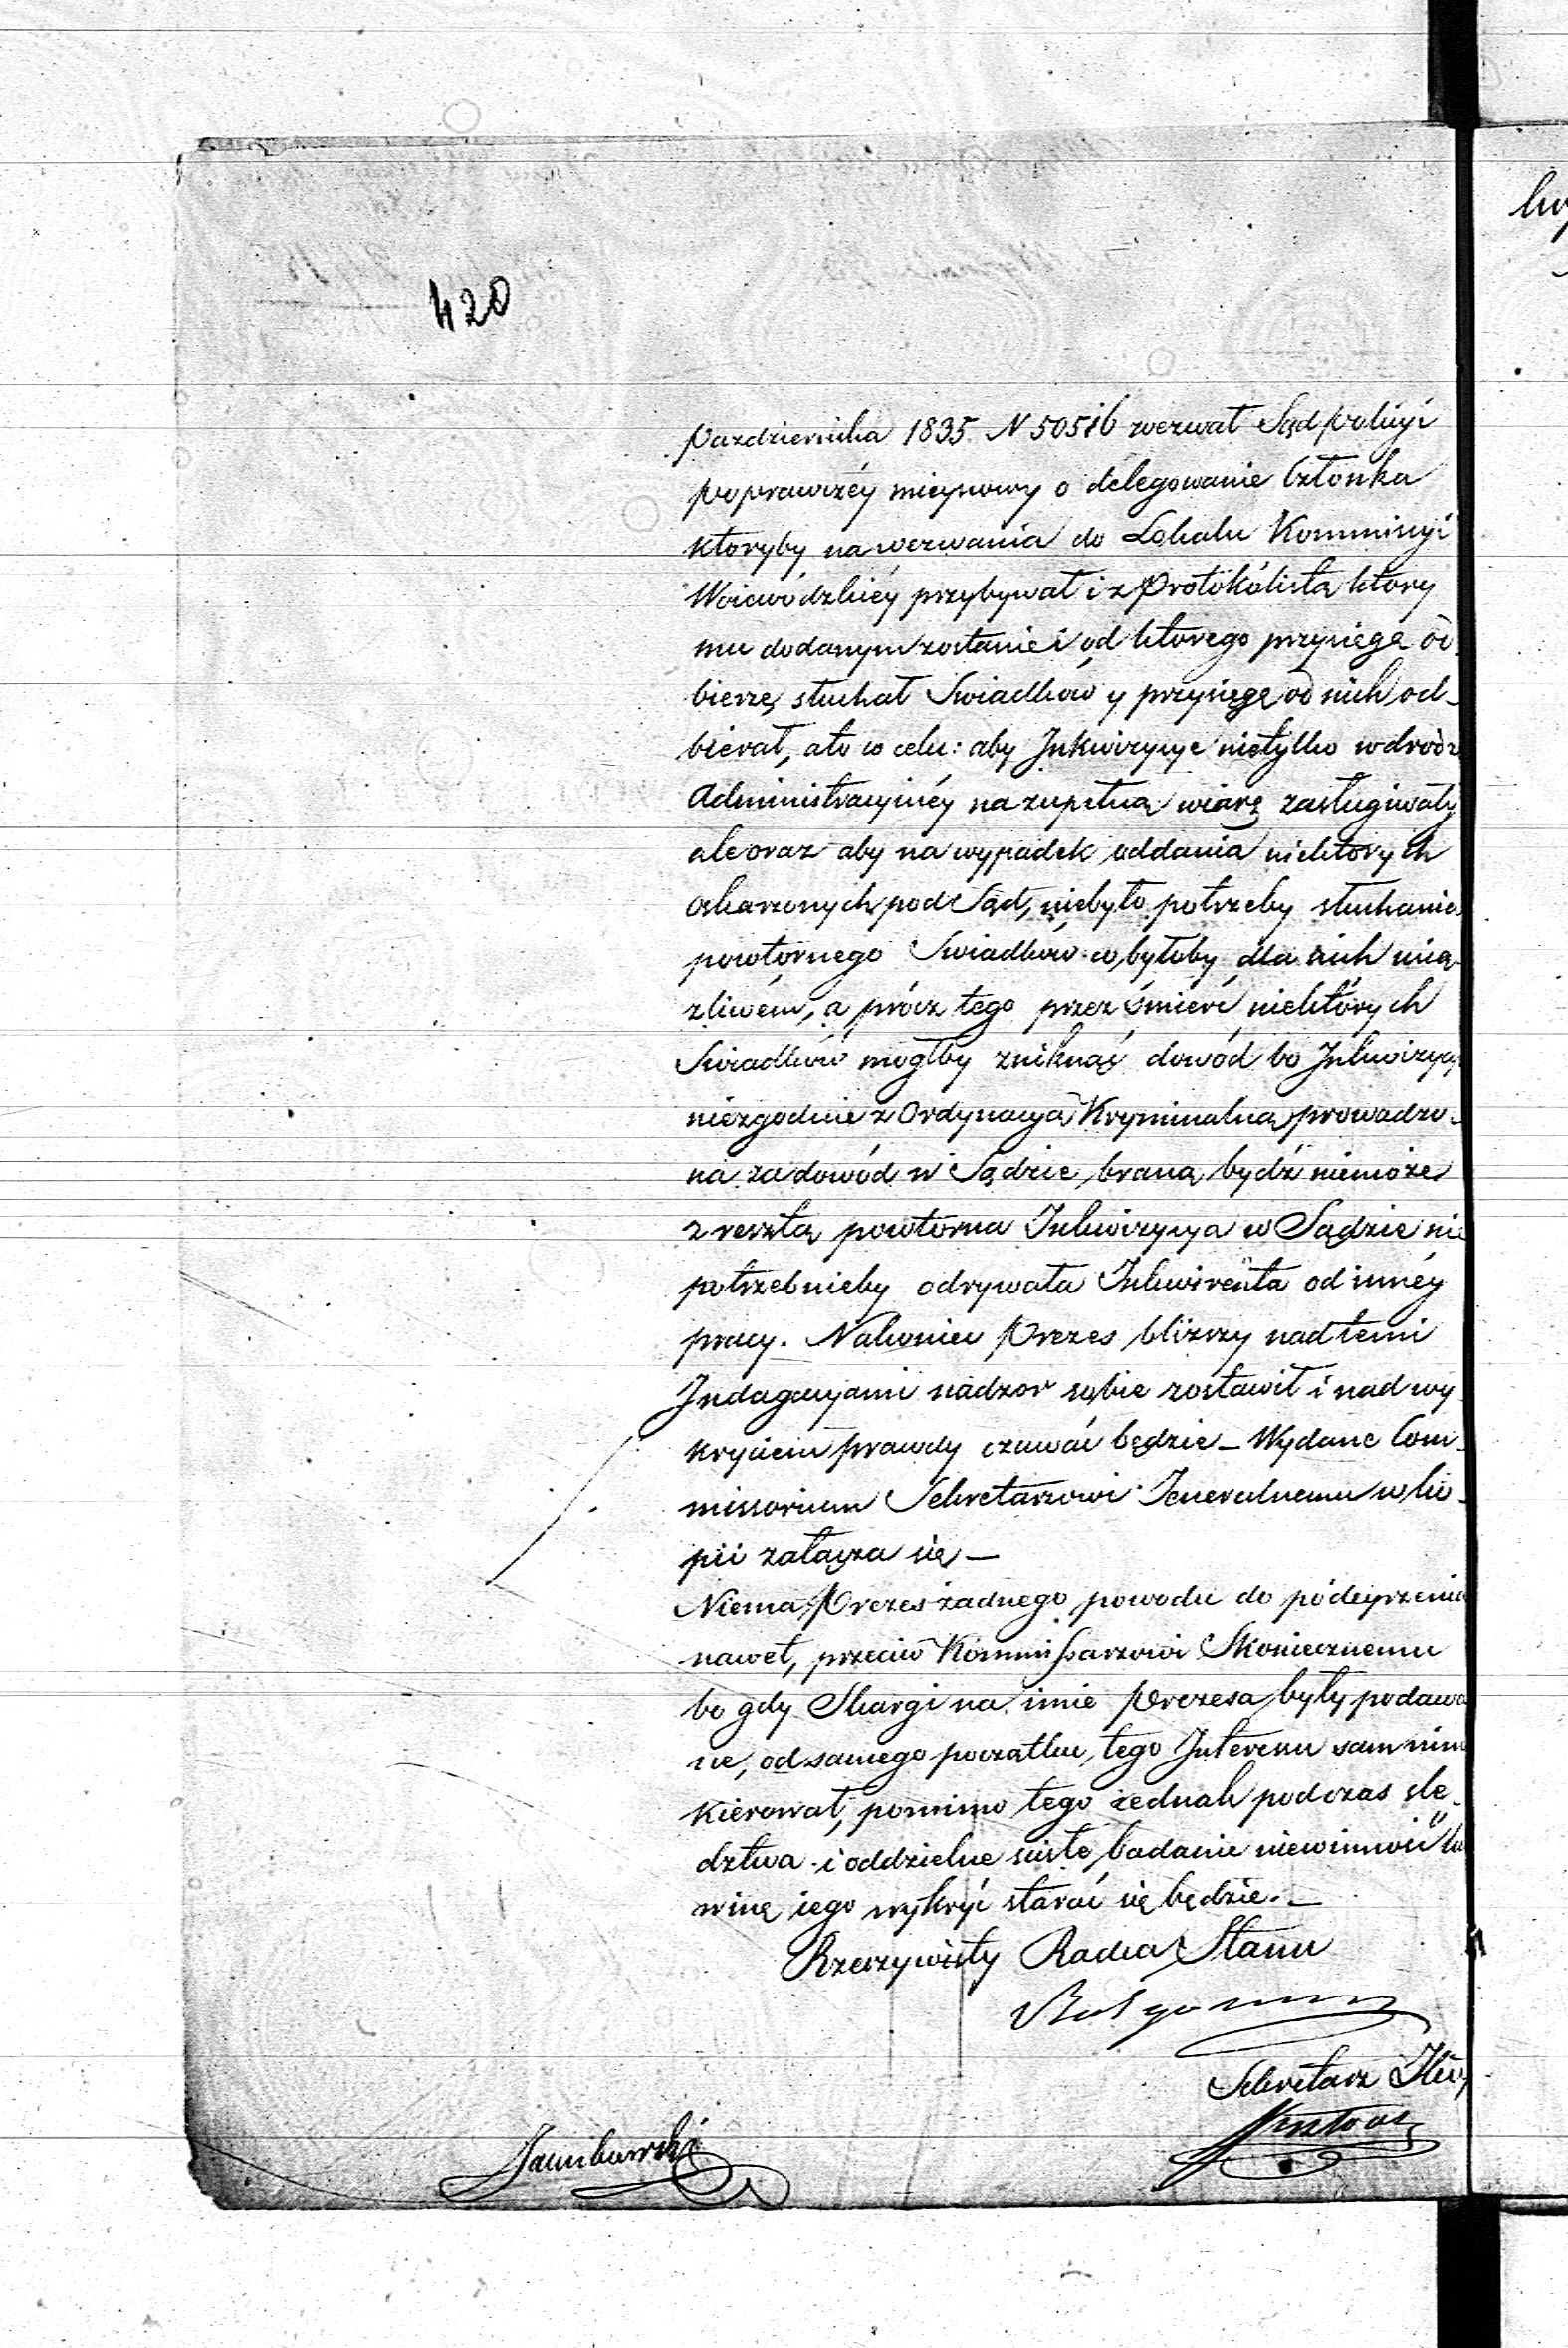 420
Pazdziernika 1835 N 50516 wezwał Sąd Policyi
poprawczéy mieyscowy o delegowanie Członka
ktoryby na wezwania do Lokalu Kommissyi
Woiewódzkiéy przybywał i z Protokólistą ktory
mu dodanym zostanie i od ktorego przysięgę od
bierze, słuchał Swiadków y przysięgę od nich od-
bierał, a to w celu: aby Inkwizycye nietylko w drodze
Administracyinéy na zupełną wiarę zasługiwały
ale oraz aby na wypadek oddania niektorych
oskarzonych pod Sąd, niebyło potrzeby słuchania
powtórnego Swiadków co byłoby dla nich ucią
zliwém, a prócz tego przez śmierć niektórych
Swiadków mogłby zniknąć dowód bo Inkwizycya
niezgodnie z Ordynacyą Kryminalną prowadzo-
na za dowód w Sądzie braną bydź niemoże
z resztą powtorna Inkwizycya w Sądzie nie
potrzebnieby odrywała Inkwirenta od innéy
pracy. Nakoniec Prezes bliższy nad temi
Indagacyami nadzor sobie zostawił i nad wy
kryciem prawdy czuwać będzie – Wydane Com-
missorium Sekretarzowi Jeneralnemu w ko-
pii załącza się –
Niema Prezes żadnego powodu do podeyrzenia
nawet, przeciw Kommissarzowi Skoniecznemu
bo gdy Skargi na imie Prezesa były podawa
ne, od samego początku, tego Interessu sam nim
kierował, pomimo tego iednak podczas śle-
dztwa i oddzielne ścisłe badanie niewinność lub
winę iego wykryć starać się będzie. –
Rzeczywisty Radca Stanu
Sekretarz